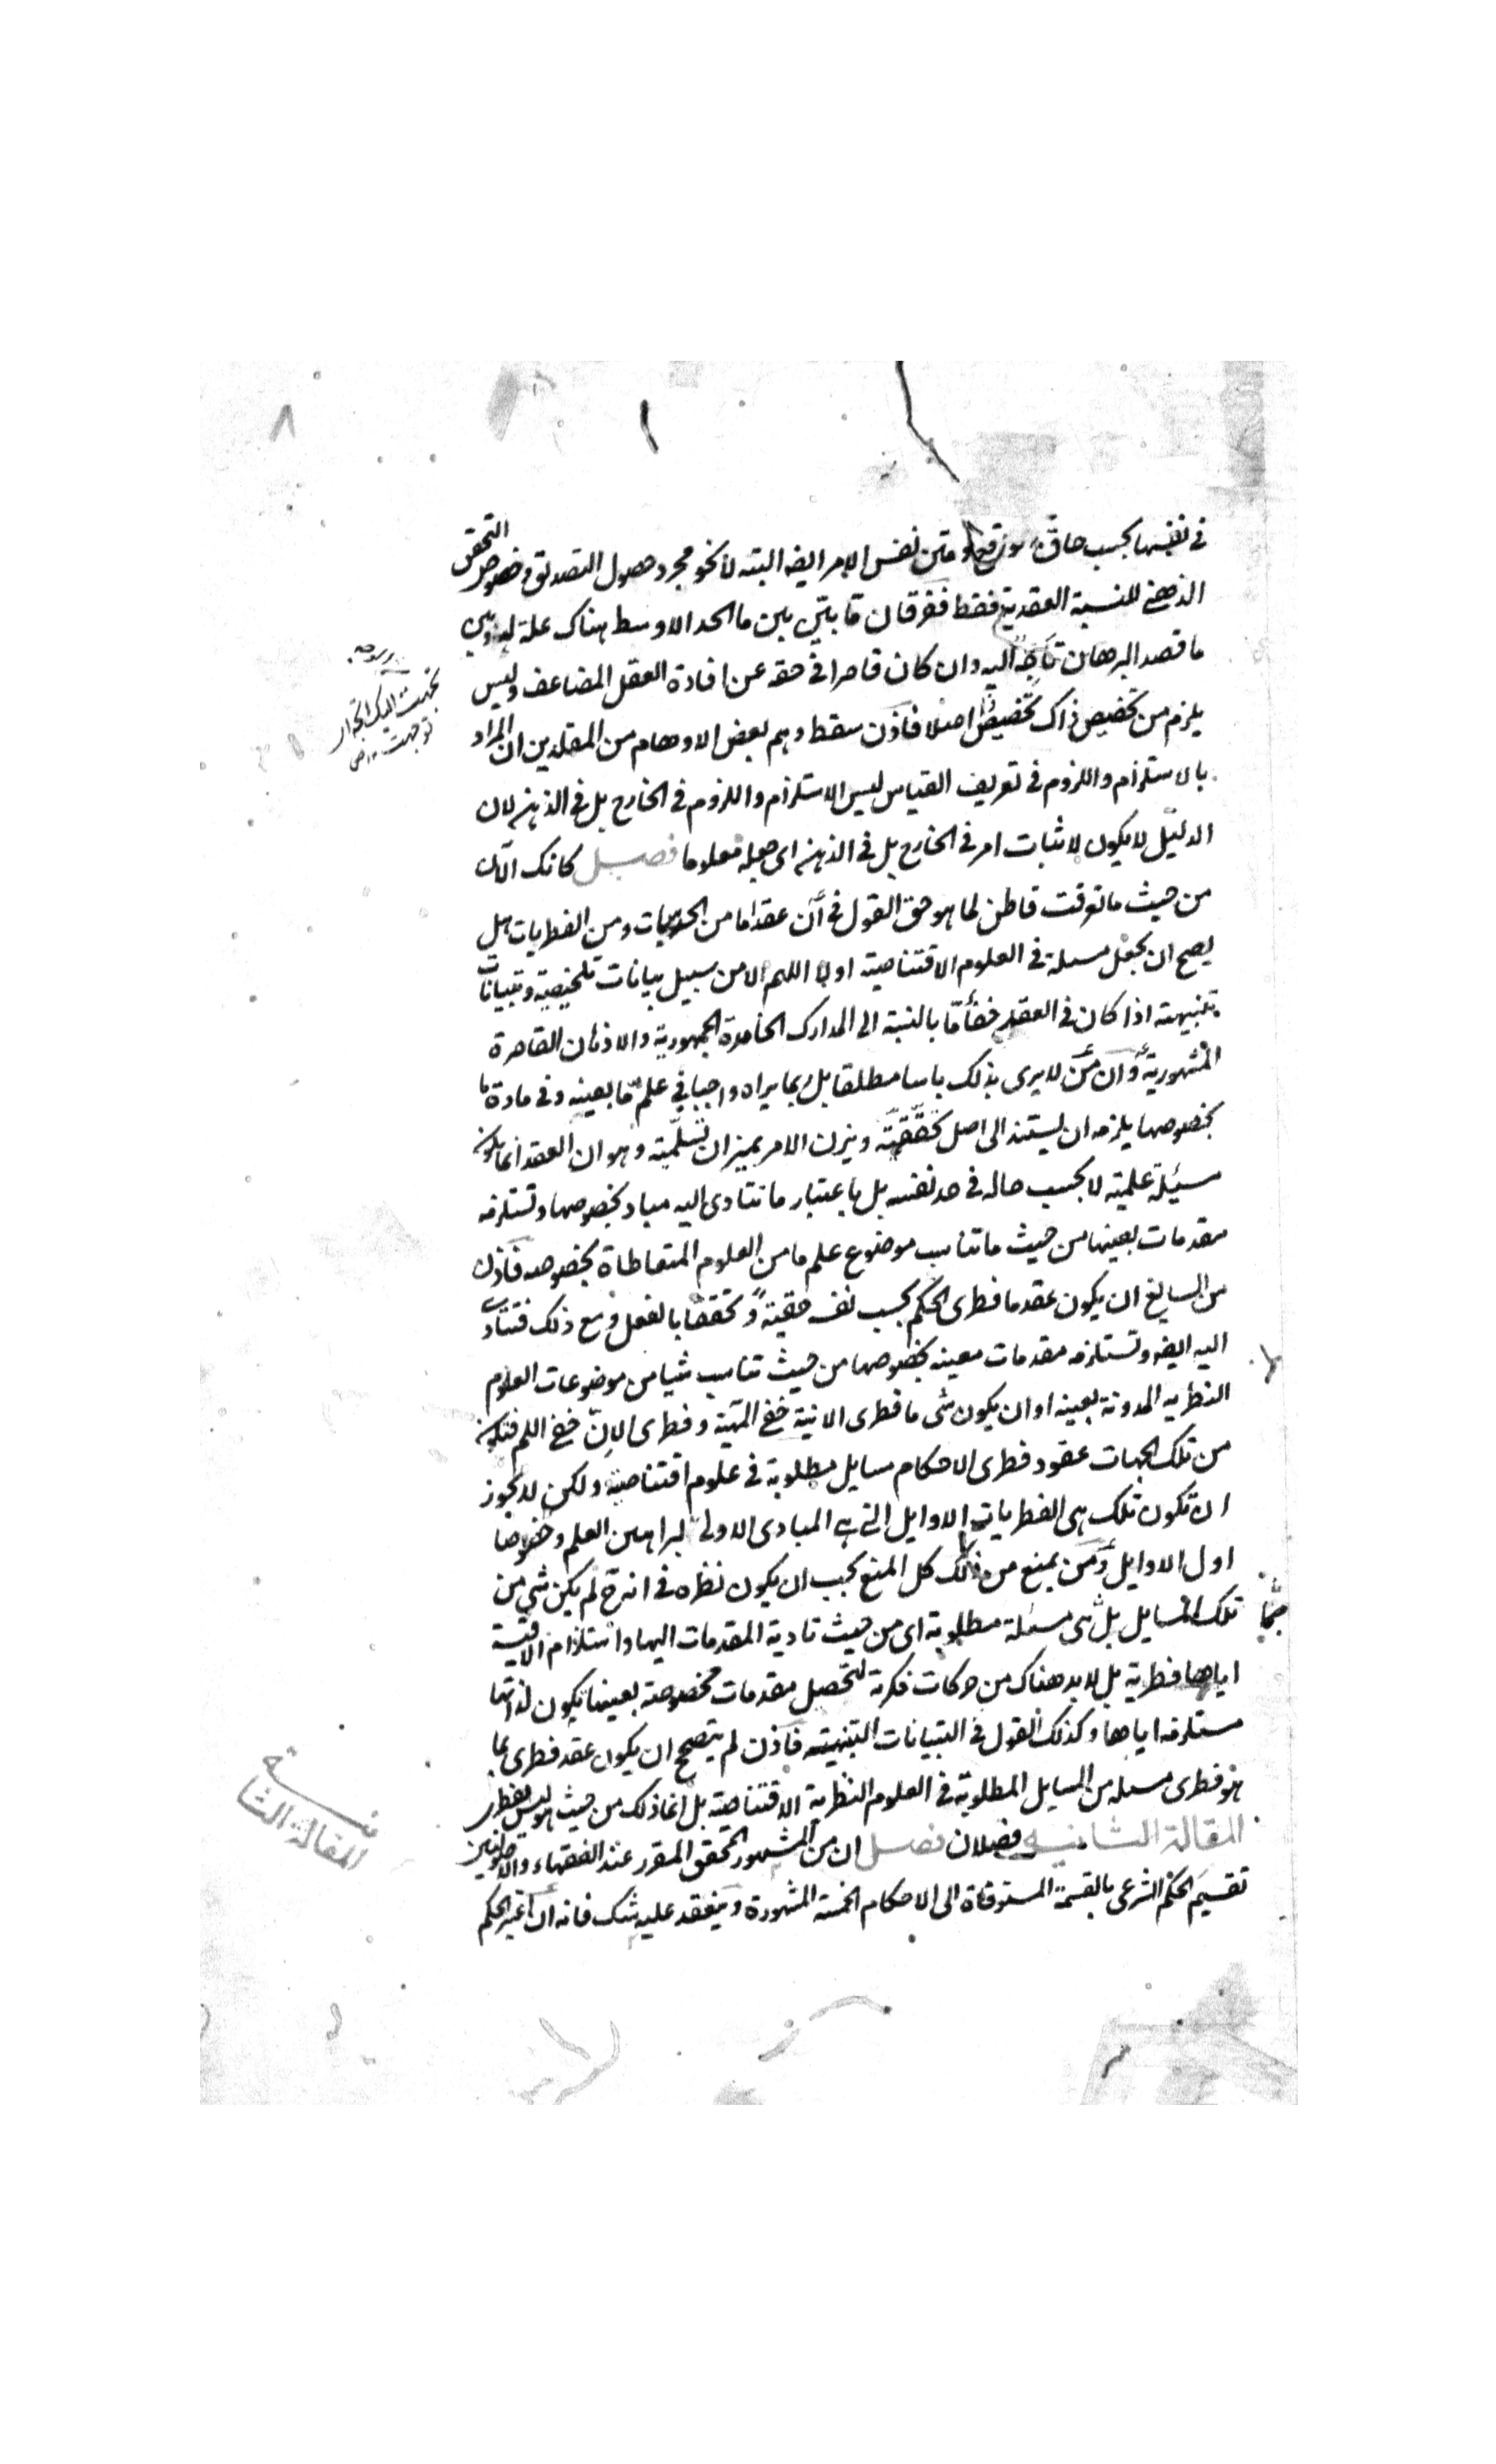 في نفسها بحسب حاق وقوعها ومتن نفس الامر ايضه البته لا نحو مجرد حصول التصديق وخصوص التحقق
الذهني للنسبة العقدية فقط ففرقان ما بين بين ما الحد الاوسط هناك علة له وبين
ما قصد البرهان اليه وان كان قاصرا في حقه عن افادة العقل المضاعف وليس
يلزم من تخصيص ذاك تخصيص اصلا فاذن سقط وهم بعض الاوهام من المقلدين ان المراد
بالاستلزام واللزوم في تعريف القياس ليس الاستلزام واللزوم في الخارج بل في الذهن لان
الدليل لا يكون لاثبات امر في الخارج بل في الذهن اى جعله معلوما فصل كانك الآن
من حيث ما تعرفت فاطن لما هو حق القول في أن عقدا ما من الحدسيات ومن الفطريات هل
يصح ان يجعل مسله في العلوم الاقتناصية اولا اللهم الا من سبيل بيانات تلخيصية وتبيانات
تنبيهته اذا كان في العقد خفأ ما بالنسبة الى المدارك الخامدة الجمهورية والاذهان القاصرة
المشهورية وان من لا يرى بذلك باسا مطلقا بل ربما يراه واجبا في علم ما بعينه وفي مادة ما
بخصوصها يلزمه ان يستند الى اصل نحققته ويزن الامر بميزان نسلمته وهو ان العقد انما يكون
مسئلة علمية لا بحسب حاله في حد نفسه بل باعتبار ما تتادى اليه مباد بخصوصها وتستلزمه
مقدمات بعينها من حيث ما تناسب موضوع علم ما من العلوم المتعاطاة بخصوصه فاذن
من السايغ ان يكون عقد ما فطرى الحكم بحسب نفسه حقيته وتحققا بالفعل ومع ذلك فتتادى
اليه ايضه وتستلزمه مقدمات معينه بخصوصها من حيث تناسب شيا من موضوعات العلوم
النظريه المدونة بعينه او ان يكون شى ما فطرى الانية خفى اللمية وفطرى الان خفى اللم فتكون
من تلك الجهات عقود فطرى الاحكام مسايل مطلوبة في علوم اقتناصية ولكن لا يجوز
ان تكون تلك هى الفطريات الاوايل التي هي المبادى الاولى لبراهين العلم وخصوصا
اول الاوايل ومن يمنع من ذلك كل المنع يجب ان يكون نظره في انه ح لم يكن شي من
تلك المسايل بما هى مسئلة مطلوبة اى من حيث تادية المقدمات اليها واستلزام الاقيسة
اياها فطرية بل لا بد هناك من حركات فكرية لتحصل مقدمات مخصوصة بعينها يكون لذاتها
مستلزمه اياها وكذلك القول في التبيانات التنبيهيه فاذن لم يتصحح ان يكون عقد فطرى بما
هو فطرى مسله من المسايل المطلوبة في العلوم النظرية الاقتناصية بل انما ذلك من حيث هو ليس بفطرى
المقالة الثانية فصلان فصل ان من المشهور المحقق المقرر عند الفقهاء والاصوليين
تقسيم الحكم الشرعى بالقسمة المستوفاة الى الاحكام الخمسة المشهورة وينعقد عليه شك فانه ان اعتبر الحكم
المقالة الثانية